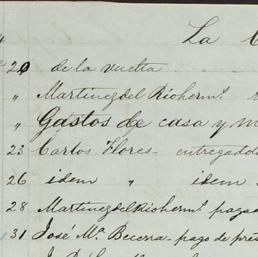 La
20 de la vuelta
" Martinez del Rio herm.s
" Gastos de casa y m
23 Carlos Flores - entregado
26 idem " idem
28 Martinez del Rio herm.s pagad
31 José M.a Becerra - pago de pre